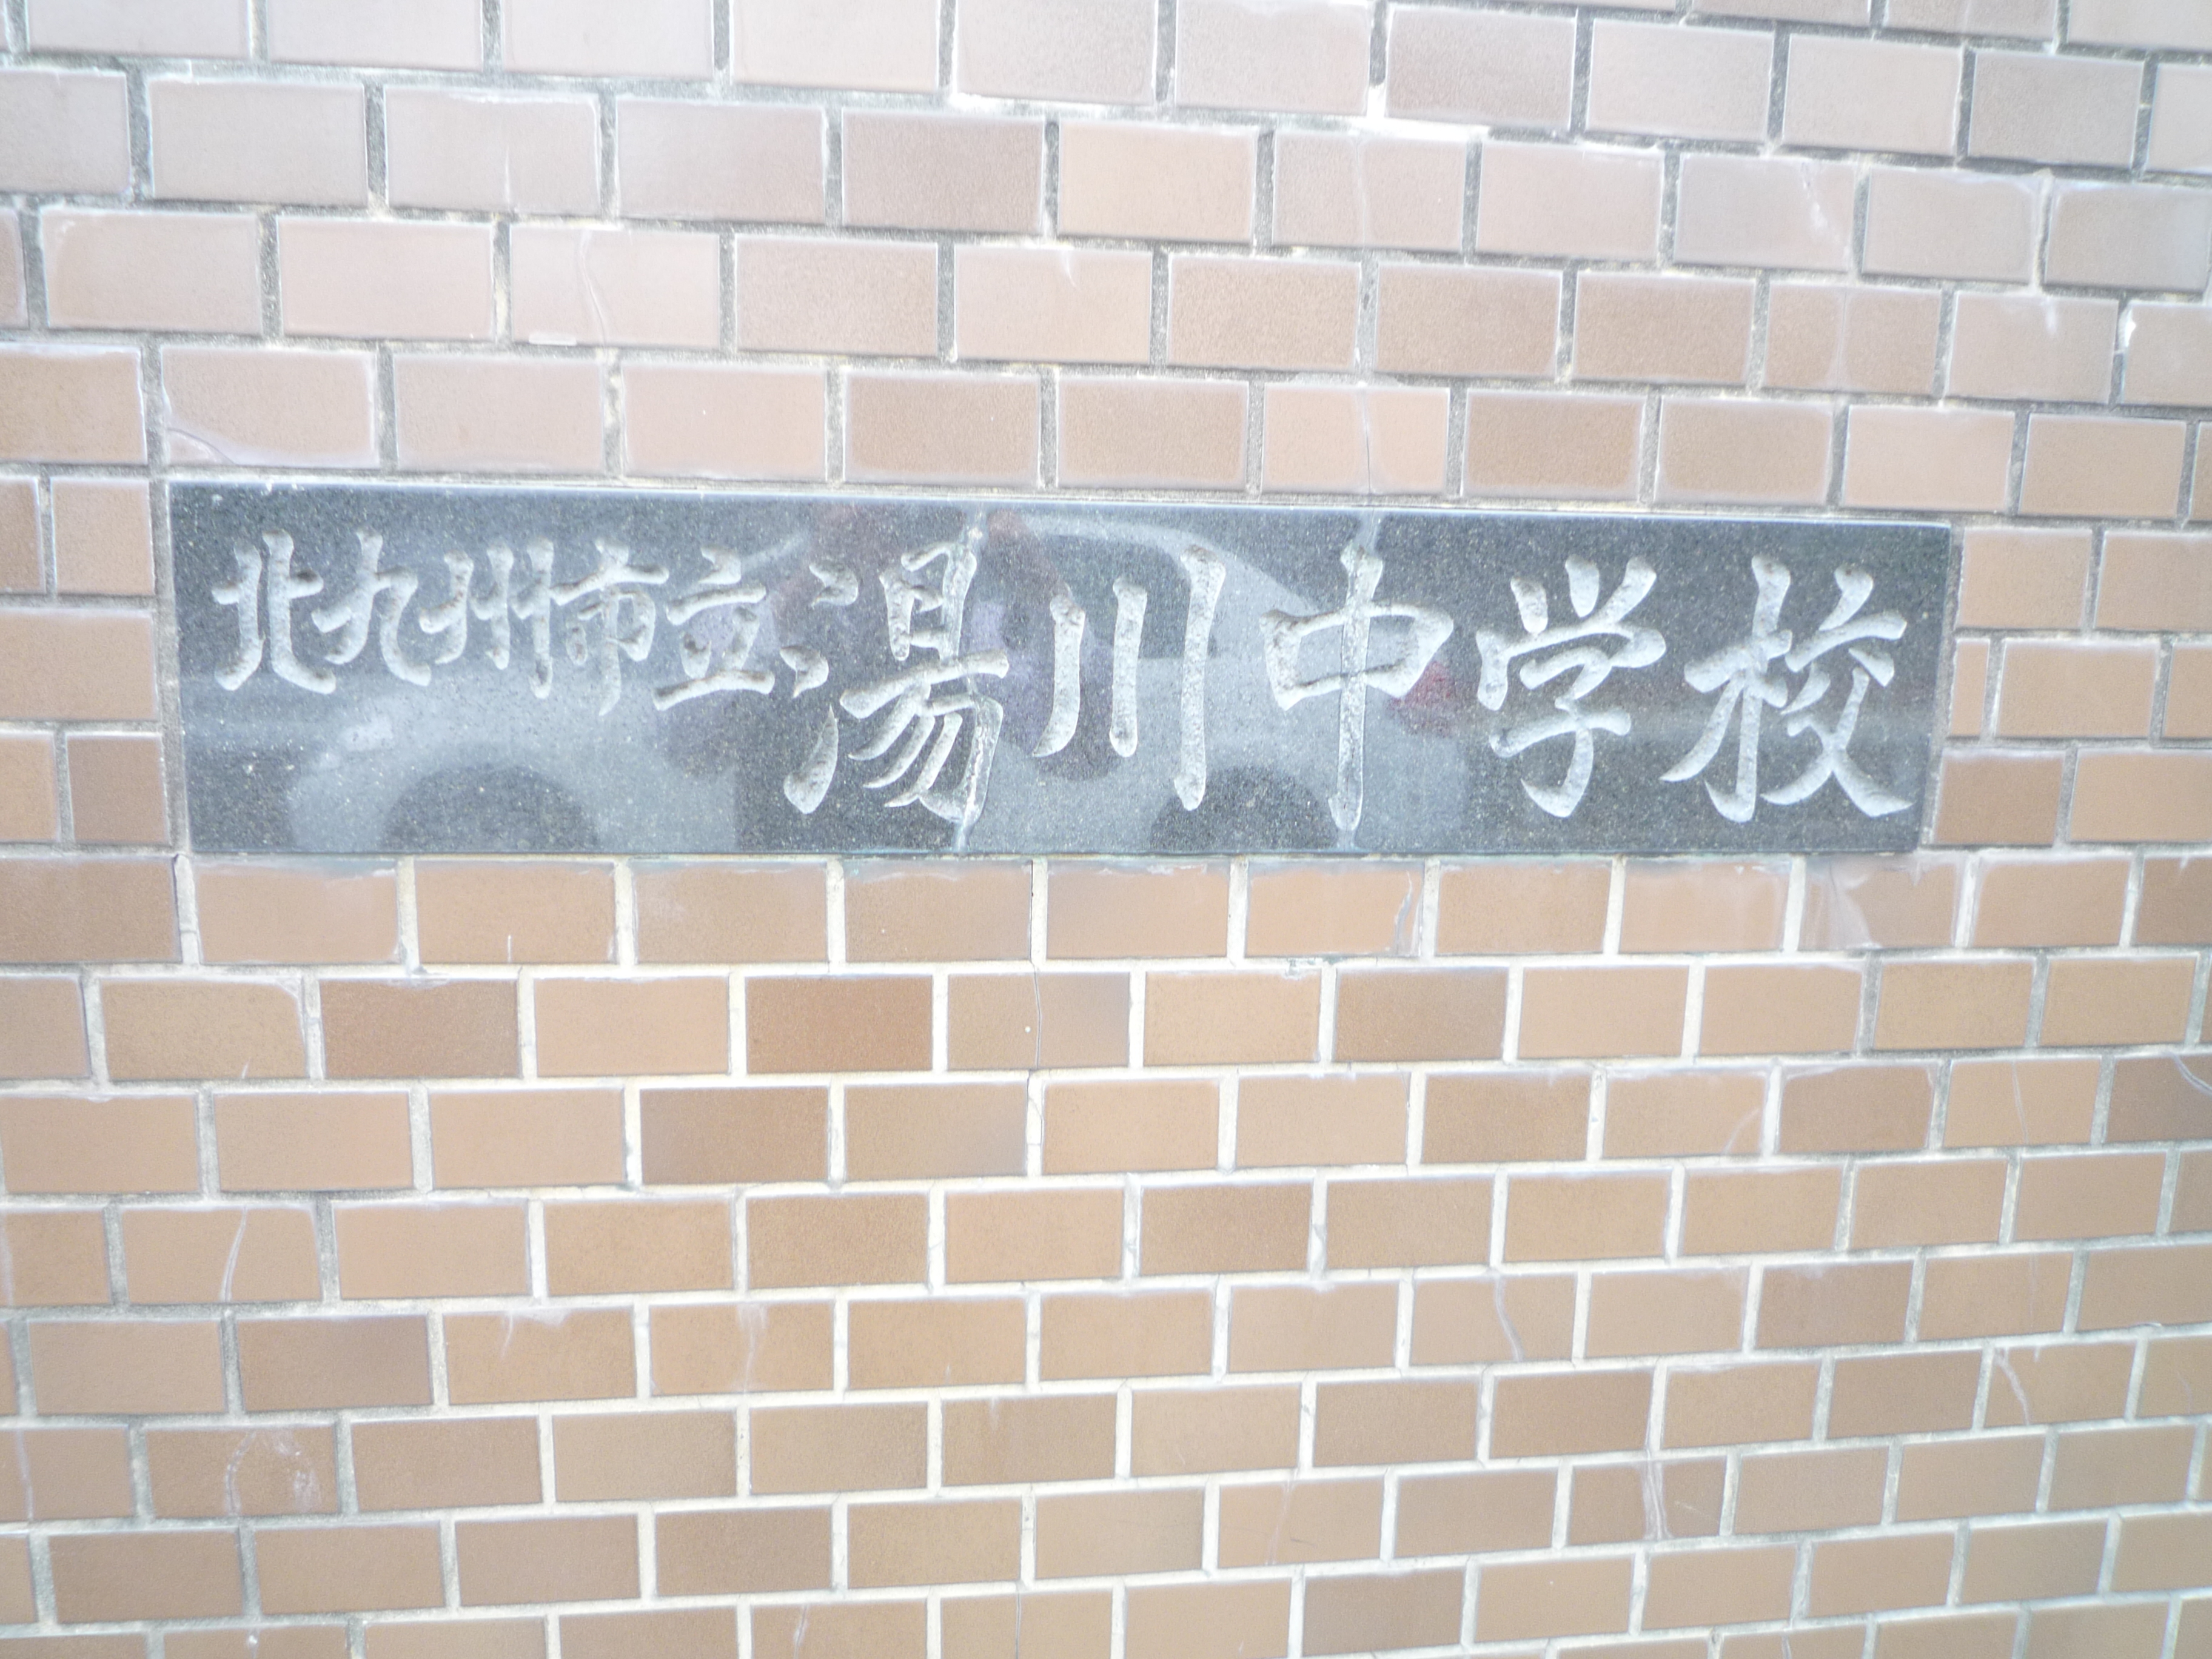 北九州市立湯川中学校